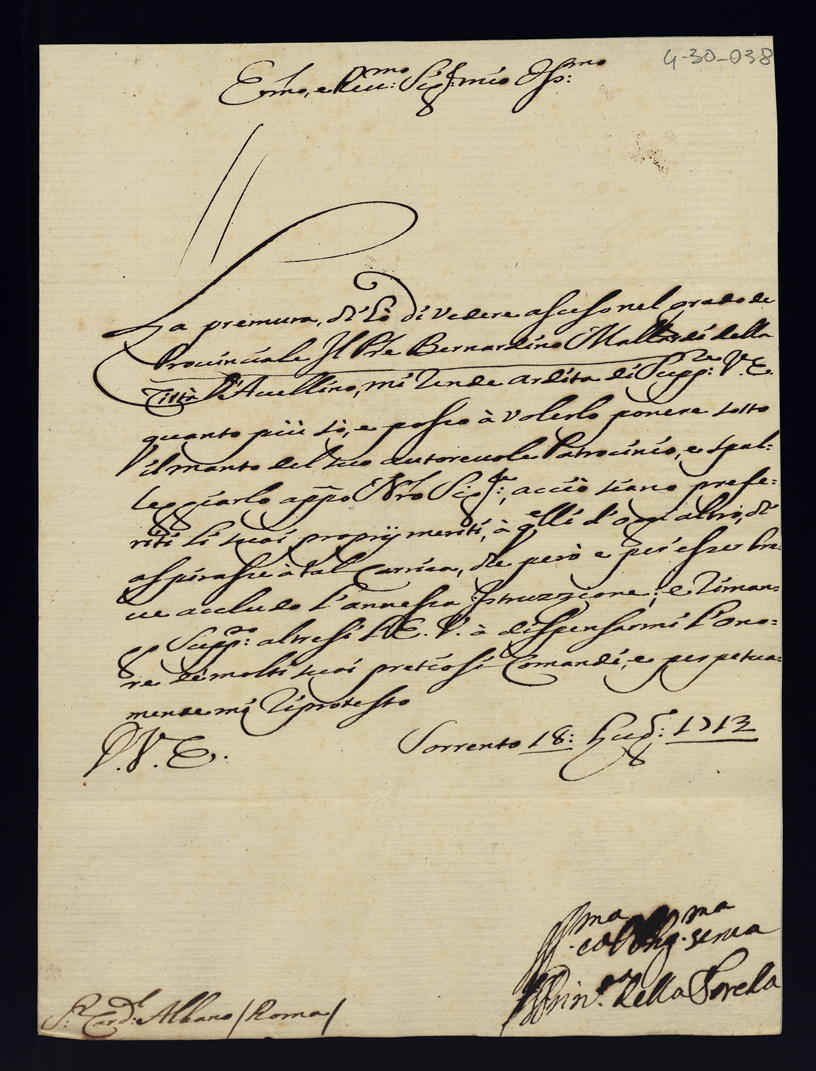 4-30-038
Em̃o, e Reu:mo Sig:r mio Oss:mo
La premura, che hò di vedere asceso nel grado de
Provinciale Il Pr̃e Bernardino Mallardi della
Città d'Avellino, mi rende ardita di Supp:re V. E.
quanto più sò, e posso à volerlo ponere sotto
il manto del suo autoreuole Patrocinio, e spal-
leggiarlo app̃o Nr̃o Sig:re, acciò siano prefe-
riti li suoi proprij meriti, à q̃lli d'ogn'altro, che
aspirasse à tal Carrica, che però e per esser bre-
ue accludo l'annessa Istruzzione; e riman-
go Supp:do altresì l'E. V. à dispensarmi l'ono-
re de molti suoi pretiosi Comandi, e perpetua-
mente mi riprotesto
D. V. E.
Sorrento 18: Lug:o 1713
Aff.ma et Oblig.ma serua
Prin.a della
S:r Card:l Albano / Roma /